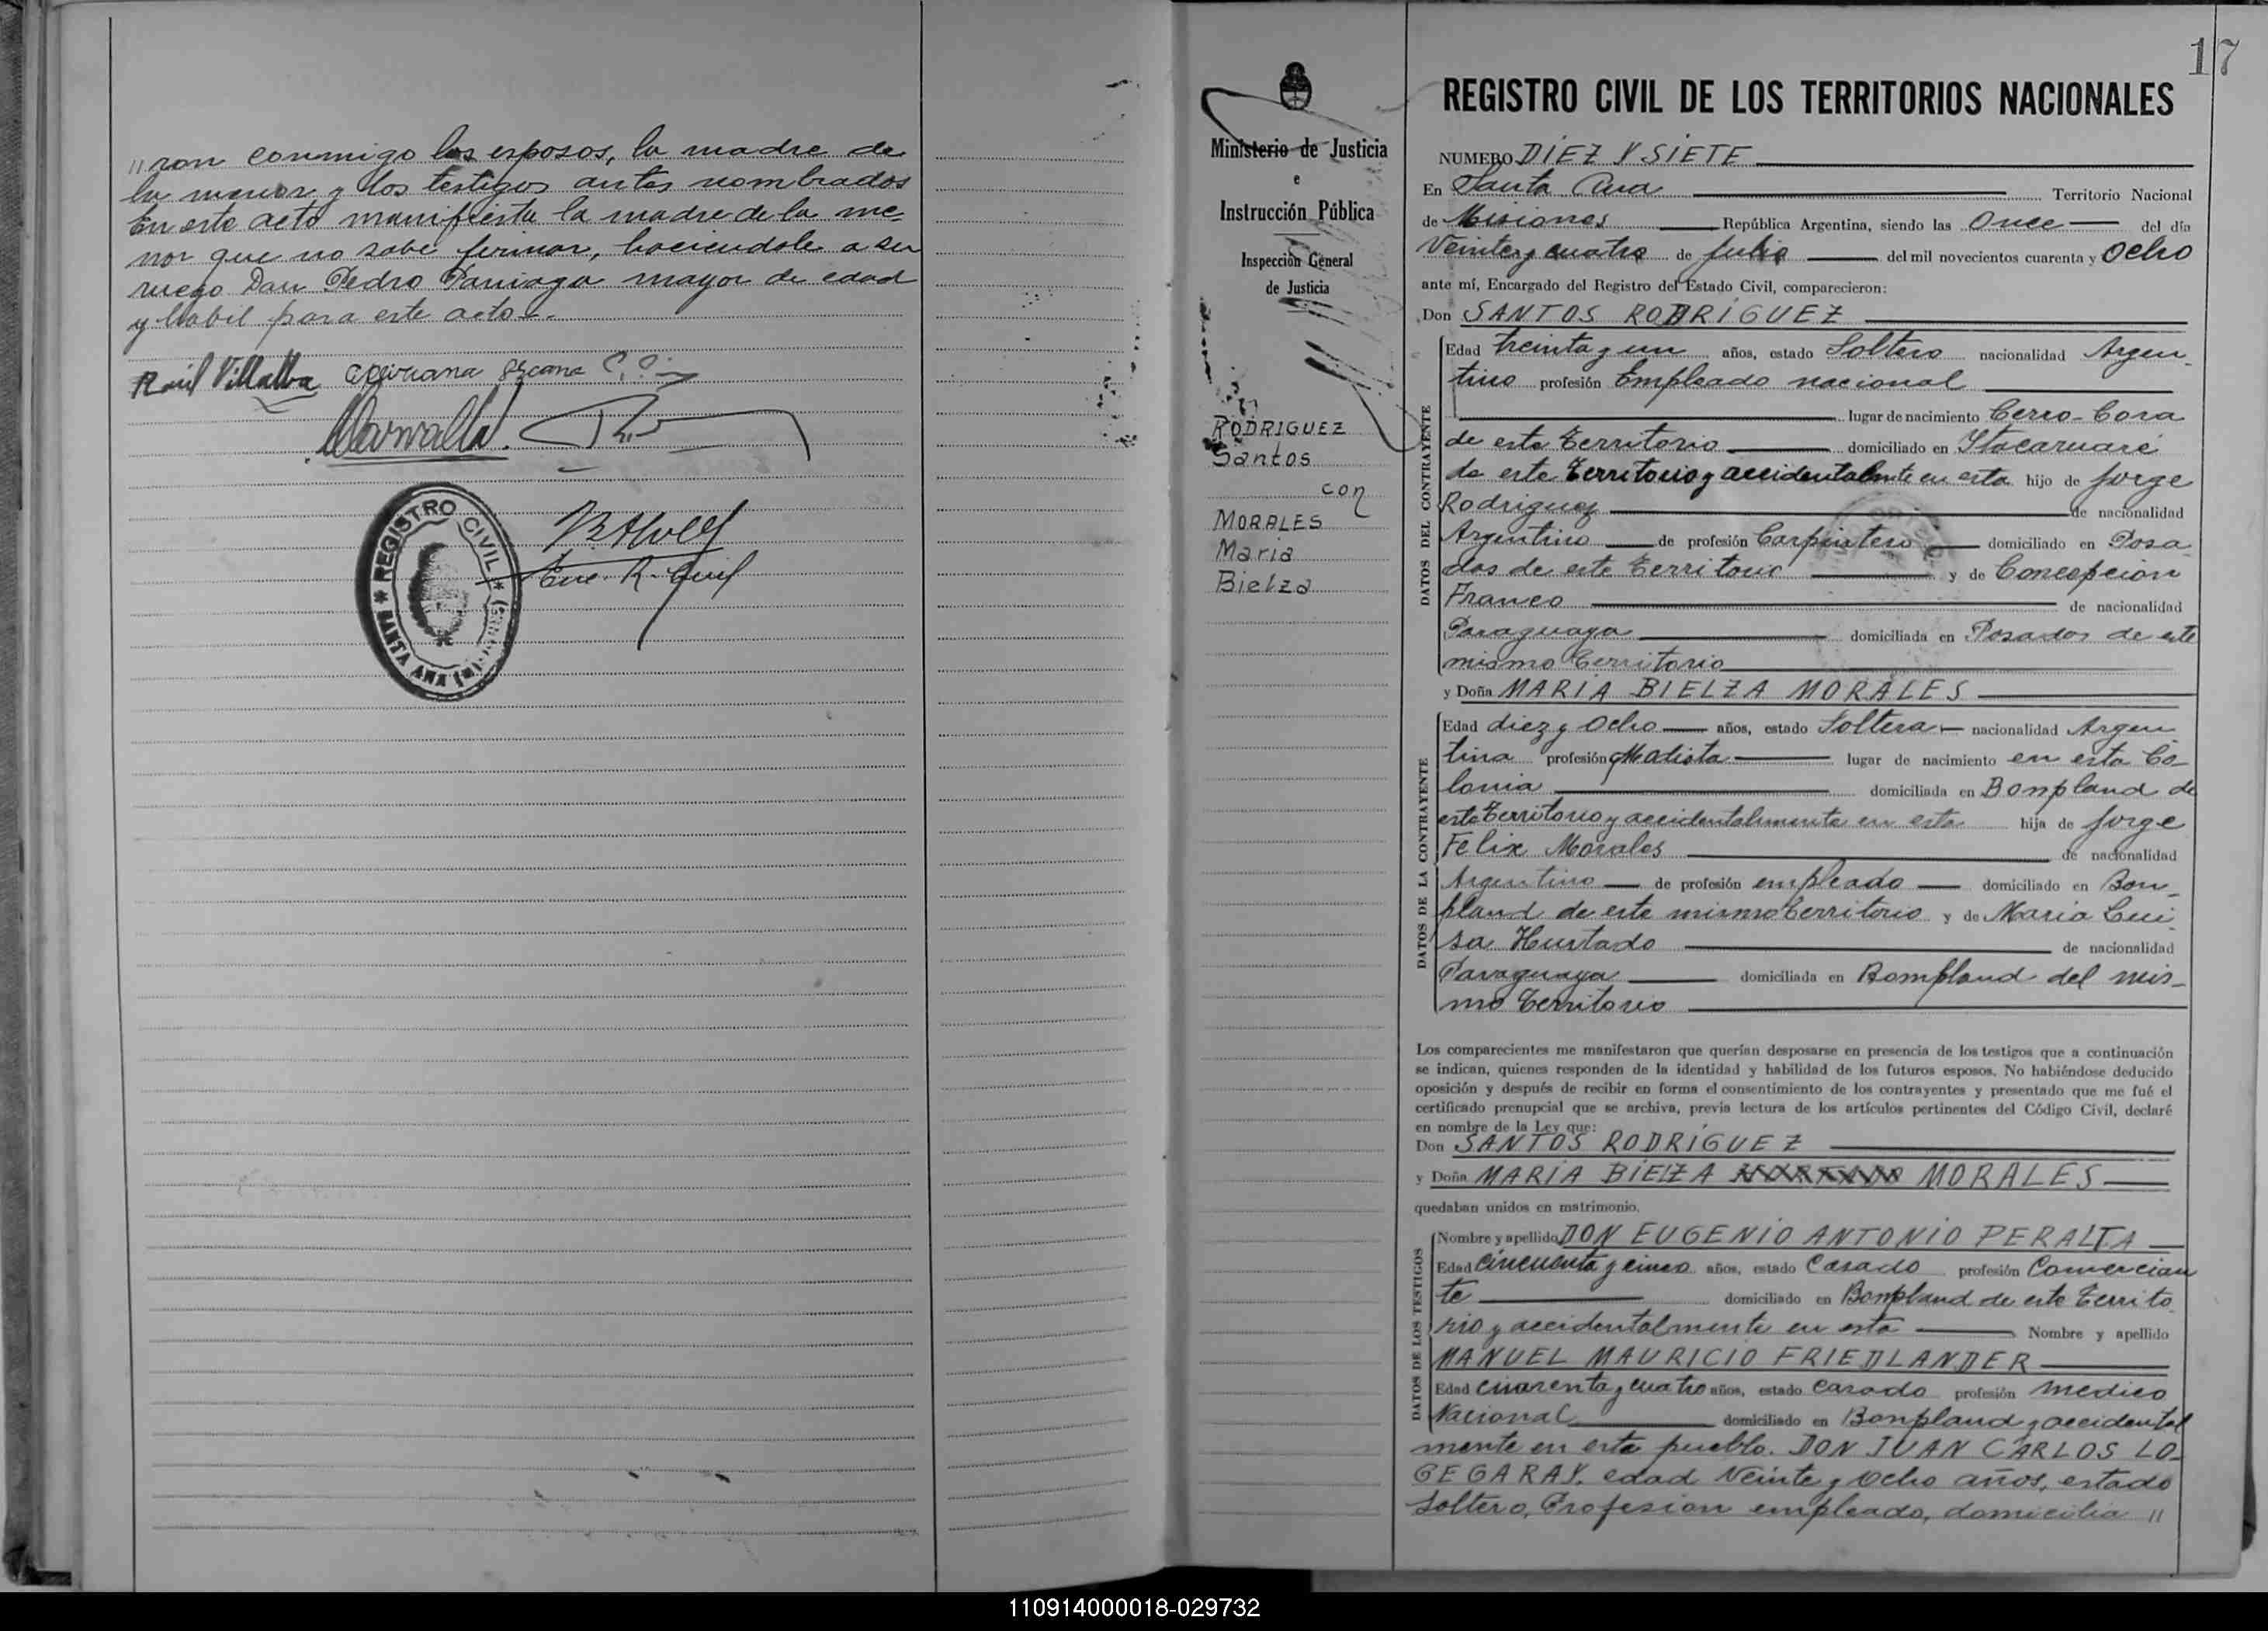 "ron conmigo los esposos, la madre de
la menor y los testigos antes nombrados
En este acto manifiesta la madre de la me-
nor que no sabe firmar, haciendole a su
ruego Don Pedro Paniagua mayor de edad
y habil para este acto.-
Raúl Villalba
REGISTRO CIVIL
SANTA ANA
Enc. R. Civil
17
Ministerio de Justicia
e
Instrucción Pública
Inspección General
de Justicia
RODRIGUEZ
Santos
con
MORALES
Maria
Bielza
REGISTRO CIVIL DE LOS TERRITORIOS NACIONALES
NUMERO DIEZ Y SIETE
En Santa Ana Territorio Nacional
de Misiones República Argentina, siendo las Once del día
Veinte y cuatro de Julio del mil novecientos cuarenta y Ocho
ante mí, Encargado del Registro del Estado Civil, comparecieron:
Don SANTOS RODRIGUEZ
DATOS DEL CONTRAYENTE
Edad treinta y un años, estado Soltero nacionalidad Argen-
tino profesión Empleado nacional
lugar de nacimiento Cerro-Cora
de este Territorio domiciliado en Itacaruaré
de este Territorio y accidentalmente en esta hijo de Jorge
Rodriguez de nacionalidad
Argentino de profesión Carpintero domiciliado en Posa-
das de este Territorio y de Concepcion
Franco de nacionalidad
Paraguaya domiciliada en Posadas de este
mismo Territorio
y Doña MARIA BIELZA MORALES
DATOS DE LA CONTRAYENTE
Edad diez y Ocho años, estado Soltera nacionalidad Argen
tina profesión Modista lugar de nacimiento en esta Co-
lonia domiciliada en Bonpland de
este Territorio y accidentalmente en esta hija de Jorge
Felix Morales de nacionalidad
Argentino de profesión empleado domiciliado en Bon-
pland de este mismo Territorio y de Maria Lui-
sa Hurtado de nacionalidad
Paraguaya domiciliada en Bompland del mis-
mo Territorio
Los comparecientes me manifestaron que querían desposarse en presencia de los testigos que a continuación
se indican, quienes responden de la identidad y habilidad de los futuros esposos. No habiéndose deducido
oposición y después de recibir en forma el consentimiento de los contrayentes y presentado que me fué el
certificado prenupcial que se archiva, previa lectura de los artículos pertinentes del Código Civil, declaré
en nombre de la Ley que:
Don SANTOS RODRIGUEZ
y Doña MARIA BIELZA MORALES
quedaban unidos en matrimonio.
DATOS DE LOS TESTIGOS
Nombre y apellido DON EUGENIO ANTONIO PERALTA
Edad cincuenta y cinco años, estado Casado profesión Comercian
te domiciliado en Bonpland de este Territo
rio y accidentalmente en esta Nombre y apellido
MANUEL MAURICIO FRIEDLANDER
Edad cuarenta y cuatro años, estado Casado profesión Medico
Nacional domiciliado en Bonpland y accidental
mente en este pueblo. DON JUAN CARLOS LO-
GEGARAY. edad Veinte y Ocho años, estado
Soltero, Profesion empleado, domicilia "
110914000018-029732